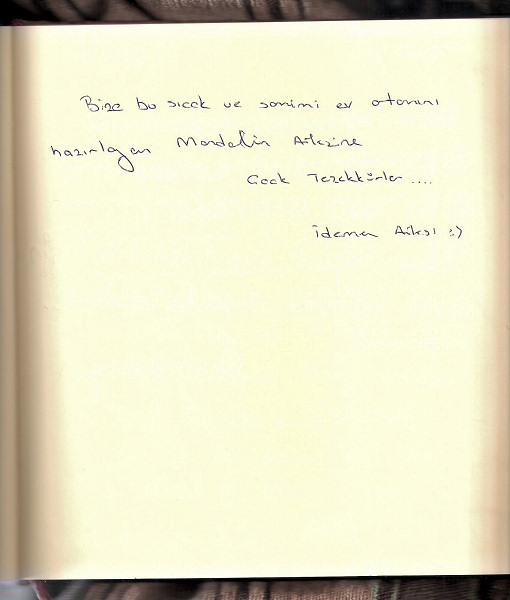 Bize bu sıcak ve samimi ev ortamını
hazırlayan Mandalin Ailesine
Çook Teşekkürler ....
İdaman Ailesi :)